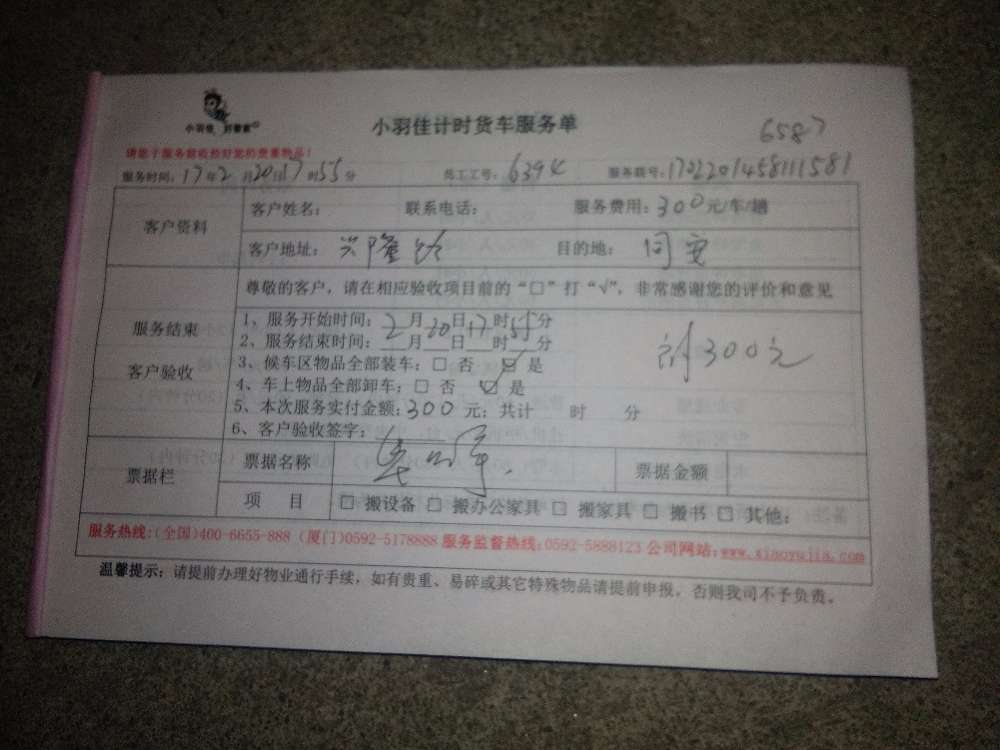 小羽佳 好管家
小羽佳计时货车服务单
6587
请您于服务前收拾好您的贵重物品!
服务时间:17年2月20日17时55分 员工工号:6394 服务联号:1702201458111581
客户资料
客户姓名: 联系电话: 服务费用:300元/车/趟
客户地址:兴隆路 目的地:同安
服务结束
客户验收
尊敬的客户,请在相应验收项目前的“□”打“√”,非常感谢您的评价和意见
1、服务开始时间:2月20日17时55分
2、服务结束时间:__月__日__时__分
3、候车区物品全部装车:□ 否 ☑ 是
4、车上物品全部卸车:□ 否 ☑ 是
5、本次服务实付金额:300元;共计 时 分
6、客户验收签字:
计300元
票据栏
票据名称 票据金额
项 目 □ 搬设备 □ 搬办公家具 □ 搬家具 □ 搬书 □ 其他:
服务热线:(全国)400-6655-888 (厦门)0592-5178888 服务监督热线:0592-5888123 公司网站:www.xiaoyujia.com
温馨提示:请提前办理好物业通行手续,如有贵重、易碎或其它特殊物品请提前申报,否则我司不予负责。